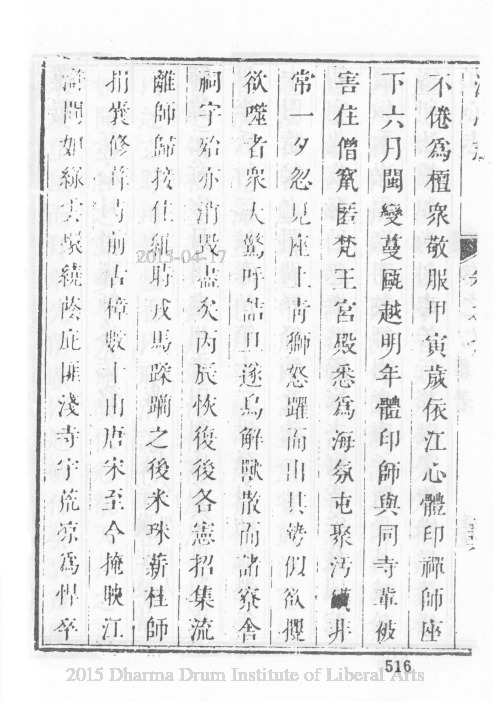 不倦為檀衆敬服甲寅歲依江心體印禪師座
下六月閩變蔓甌越明年體印師與同寺輩被
害住僧竄匿梵王宮殿悉為海氛屯聚汚穢非
常一夕忽見座上青獅怒躍而出其勢似欲攫
欲噬者衆大驚呼詰旦遂鳥解獸散而諸寮舍
祠宇殆亦消毀盡矣丙辰恢復後各憲招集流
離師歸接住維時戎馬蹂躪之後米珠薪桂師
捐囊修葺寺前古樟數十由唐宋至今掩映江
間如緑雲繚繞蔭庇匪淺寺宇荒凉為悍卒
516
2015-04-17
2015 Dharma Drum Institute of Liberal Arts